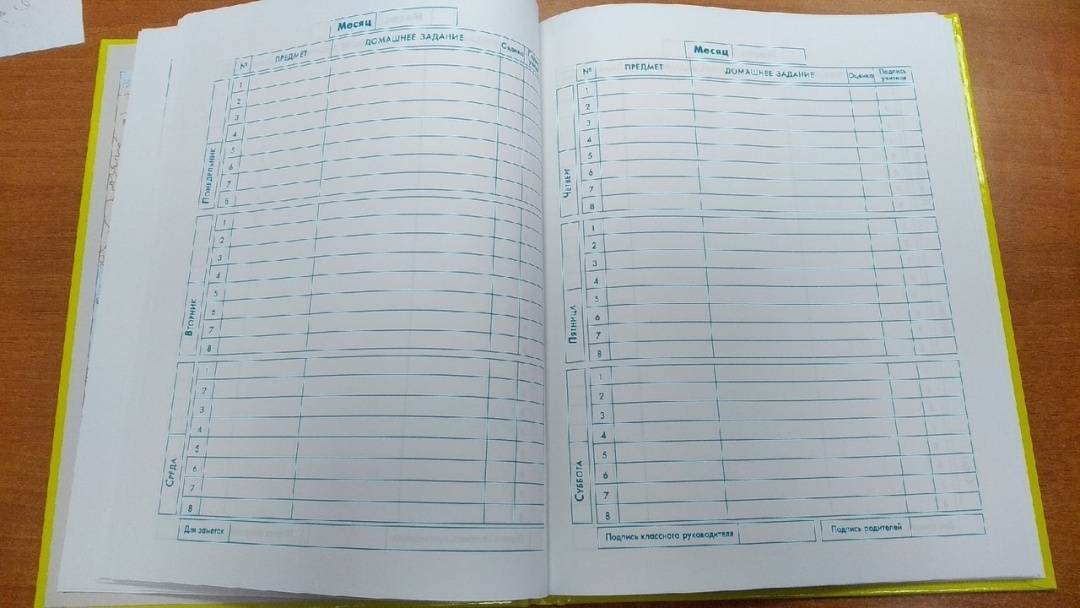 Месяц
№ ПРЕДМЕТ ДОМАШНЕЕ ЗАДАНИЕ Оценка
ПОНЕДЕЛЬНИК
1
2
3
4
5
6
7
8
ВТОРНИК
1
2
3
4
5
6
7
8
СРЕДА
1
2
3
4
5
6
7
8
Для заметок
Месяц
№ ПРЕДМЕТ ДОМАШНЕЕ ЗАДАНИЕ Оценка Подпись учителя
ЧЕТВЕРГ
1
2
3
4
5
6
7
8
ПЯТНИЦА
1
2
3
4
5
6
7
8
СУББОТА
1
2
3
4
5
6
7
8
Подпись классного руководителя Подпись родителей